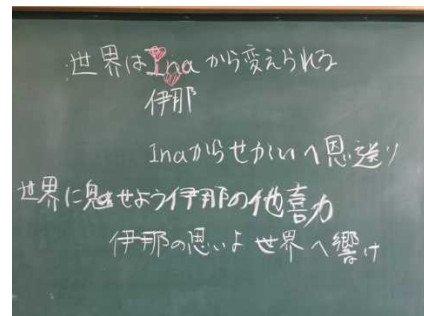 世界はInaから変えられる
伊那
Inaからせかいへ恩送り
世界に魅せよう伊那の他喜力
伊那の思いよ世界へ響け